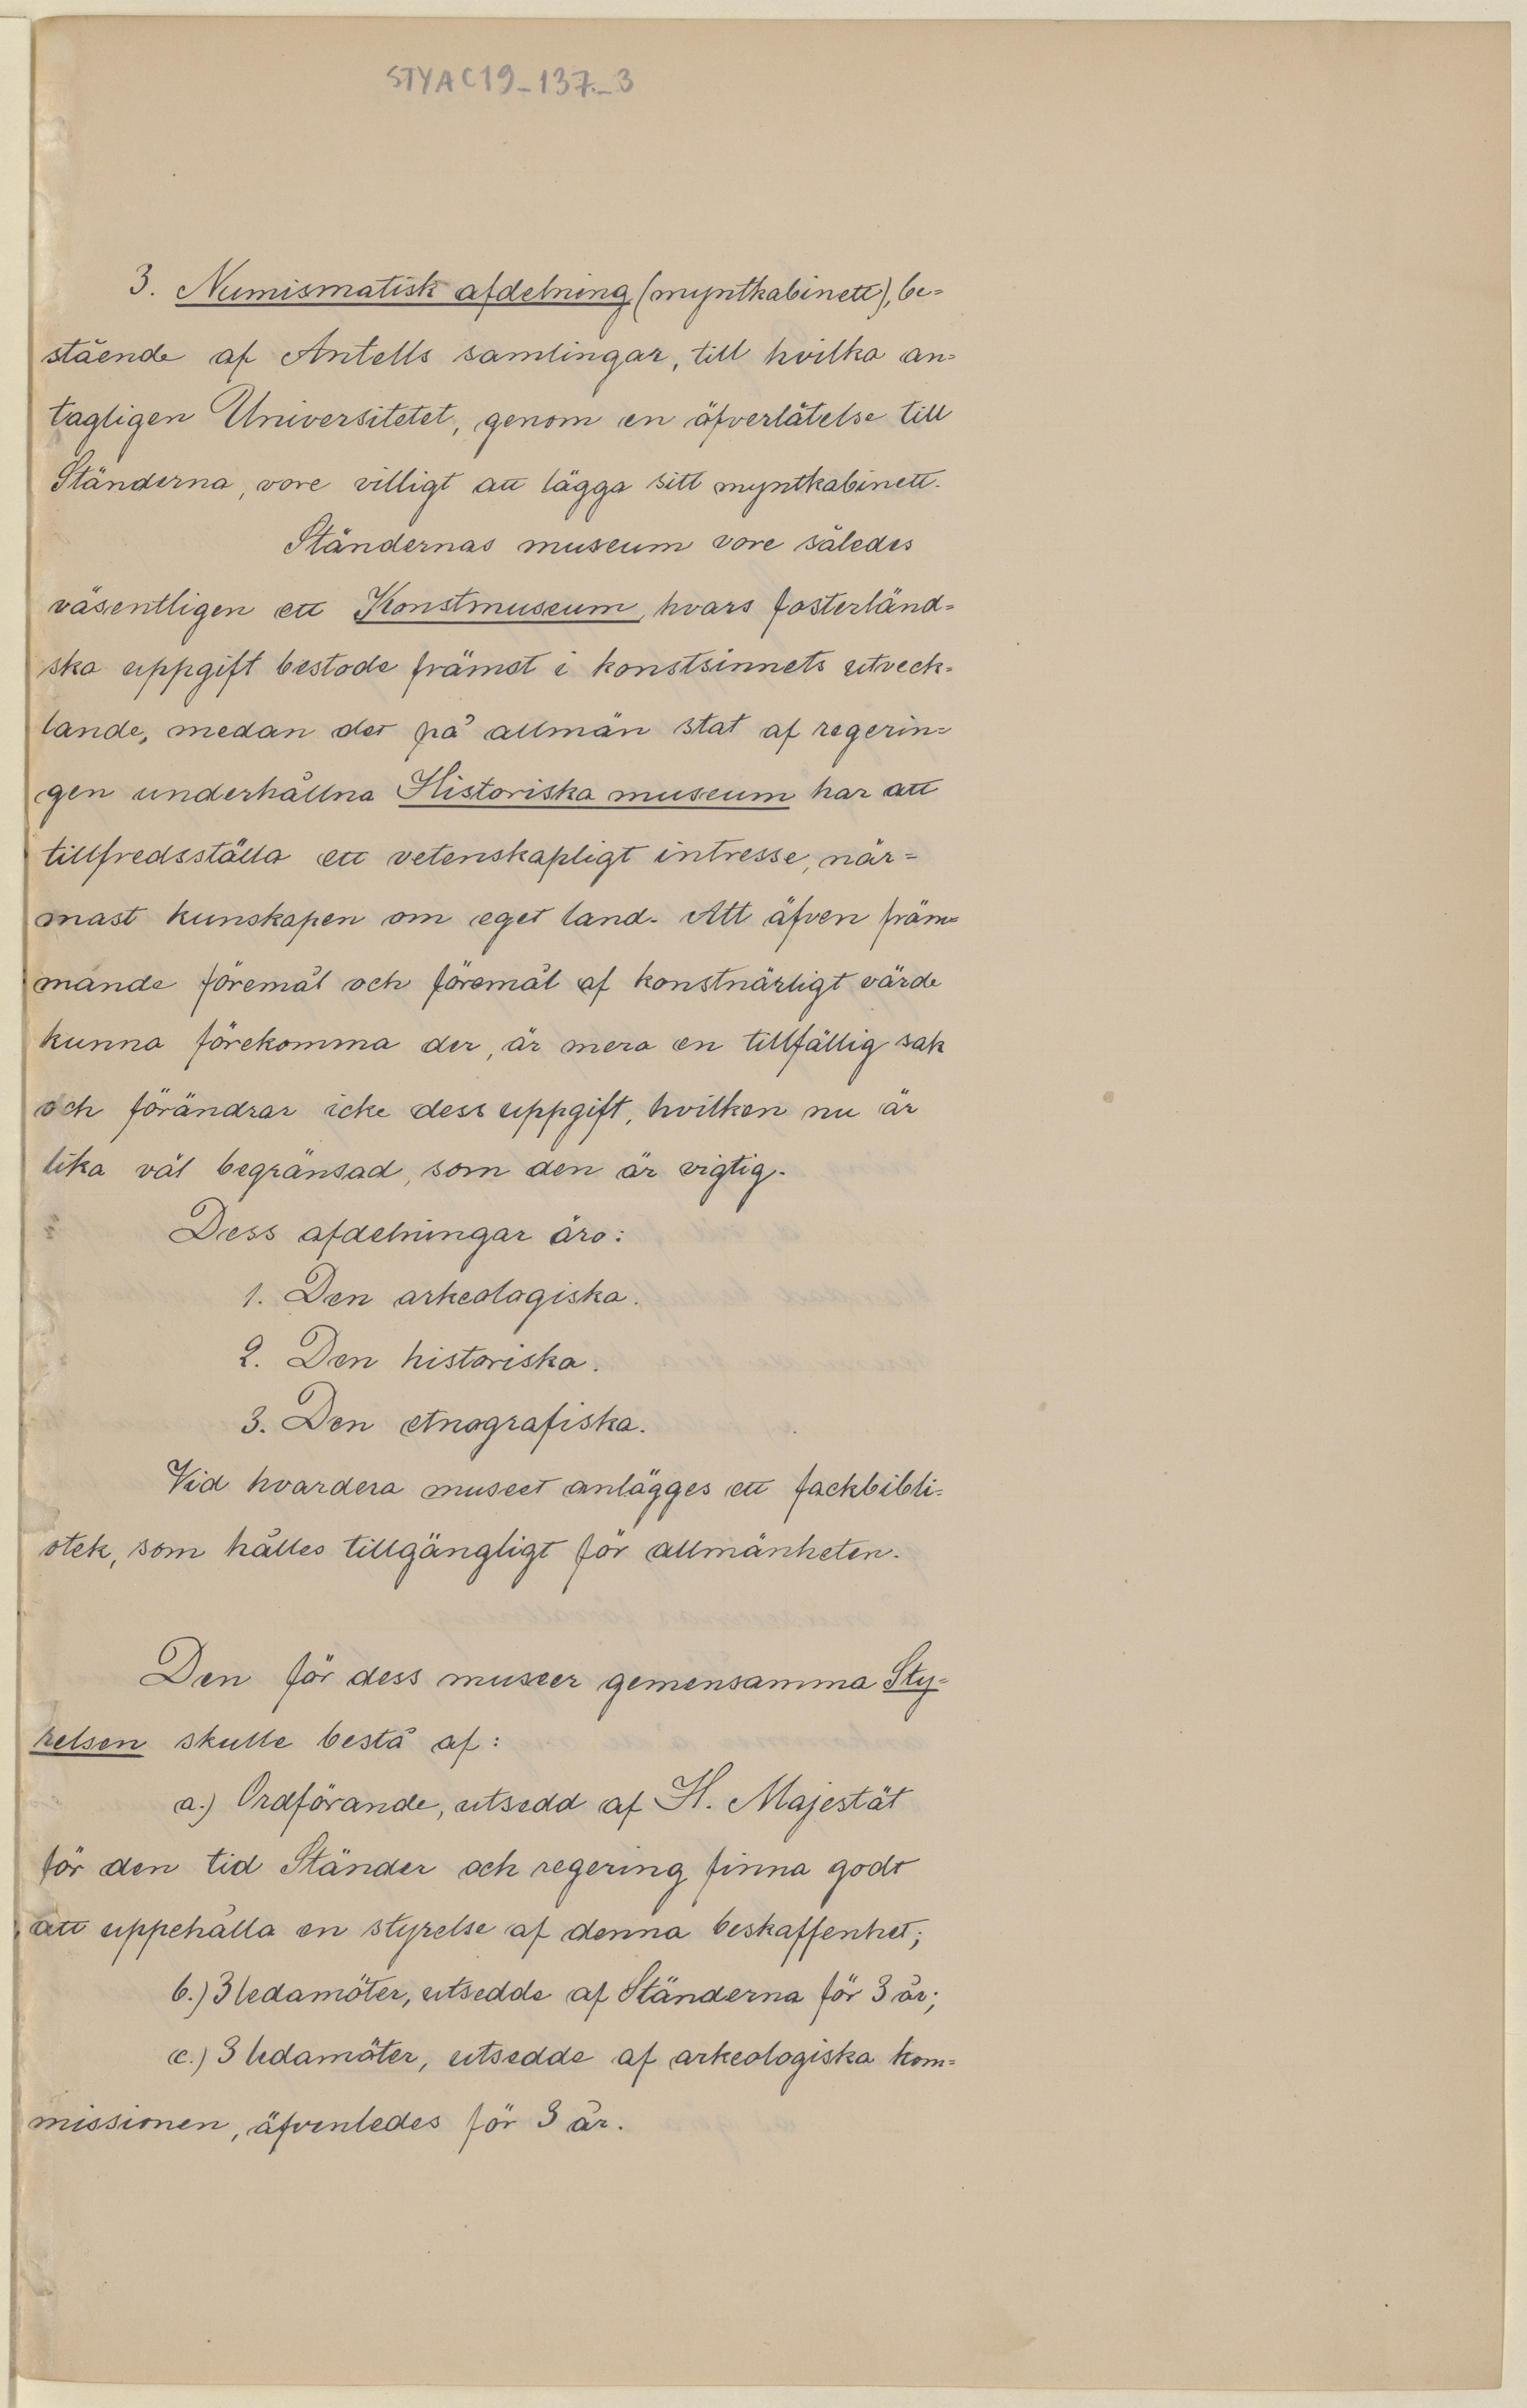 STYAC19_137._3
3. Numismatisk afdelning (myntkabinett), be=
stående af Antells samlingar, till hvilka an=
tagligen Universitetet, genom en äfverlåtelse till
Ständerna, vore villigt att lägga sitt myntkabinett.
Ständernas museum vore således
väsentligen ett Konstmuseum, hvars fosterländ=
ska uppgift bestode främst i konstsinnets utveck=
lande, medan det på allmän stat af regerin=
gen underhållna Historiska museum har att
tillfredsställa ett vetenskapligt intresse, när=
mast kunskapen om eget land. Att äfven främ=
mande föremål och föremål af konstnärligt värde
kunna förekomma der, är mera en tillfällig sak
och förändrar icke dess uppgift, hvilken nu är
lika väl begränsad, som den är vigtig.
Dess afdelningar äro:
1. Den arkeologiska.
2. Den historiska.
3. Den etnografiska.
Vid hvardera museet anlägges ett fackbibli=
otek, som hålles tillgängligt för allmänheten.
Den för dess museer gemensamma Sty=
relsen skulle bestå af:
a.) Ordförande, utsedd af H. Majestät
för den tid Ständer och regering finna godt
att uppehålla en styrelse af denna beskaffenhet;
b.) 3 ledamöter, utsedde af Ständerna för 3 år;
c.) 3 ledamöter, utsedde af arkeologiska kom=
missionen, äfvenledes för 3 år.